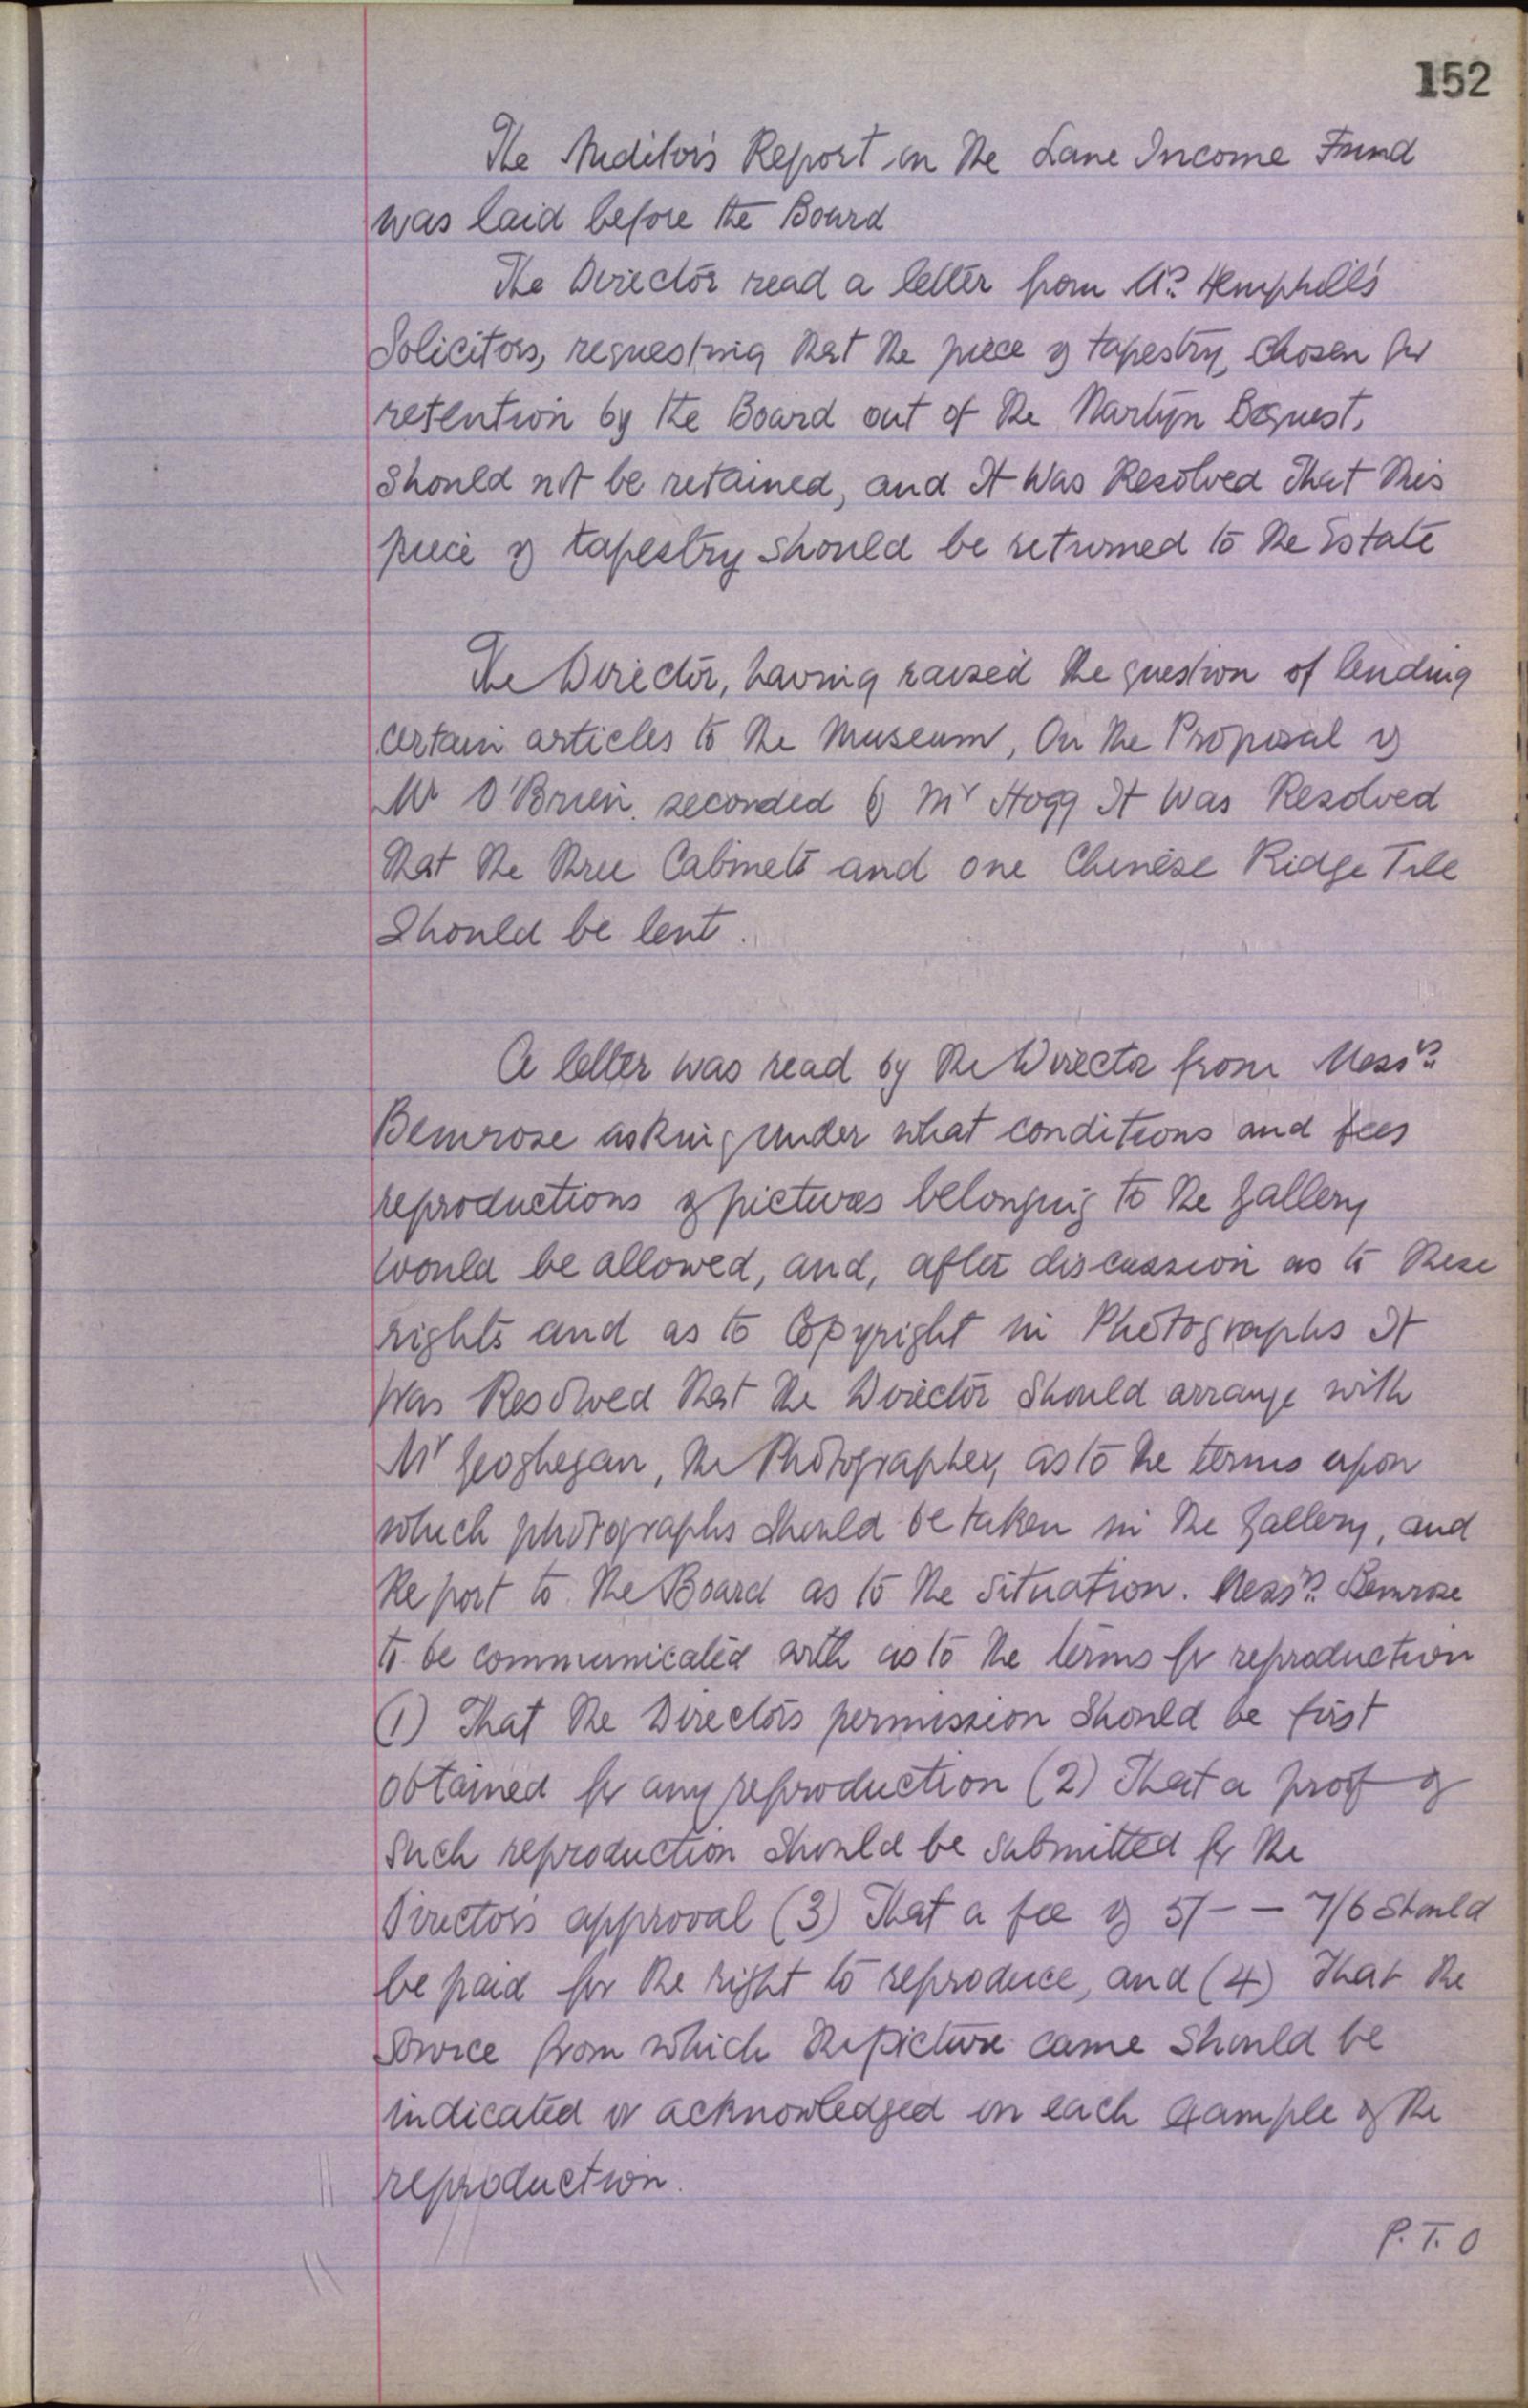 152
The Auditor's Report on the Lane Income Fund
was laid before the Board
The Director read a letter from Hemphill's
Solicitors, requesting that the piece of tapestry, chosen for
retention by the Board out of the Martyn Bequest,
should not be retained, and It Was Resolved That this
piece of tapestry should be returned to the Estate
The Director, having raised the question of lending
certain articles to the Museum, On the Proposal of
Mr O'Brien. seconded by Mr Hogg It Was Resolved
that the three Cabinets and one Chinese Ridge Tile
Should be lent.
A letter was read by the Director from Messrs.
Bemrose asking under what conditions and fees
reproductions of pictures belonging to the Gallery
would be allowed, and, after discussion as to these
rights and as to Copyright in Photographs It
Was Resolved that the Director Should arrange with
Mr Geoghegan, the Photographer, as to the terms upon
which photographs should be taken in the Gallery, and
Report to the Board as to the situation. Messrs. Bemrose
to be communicated with as to the terms for reproduction
(1) That the Directors permission Should be first
obtained for any reproduction (2) That a proof of
such reproduction should be submitted for the
Directors approval (3) That a fee of 5/- - 7/6 should
be paid for the right to reproduce, and (4) That the
source from which the picture came should be
indicated or acknowledged on each example of the
reproduction.
P.T.O